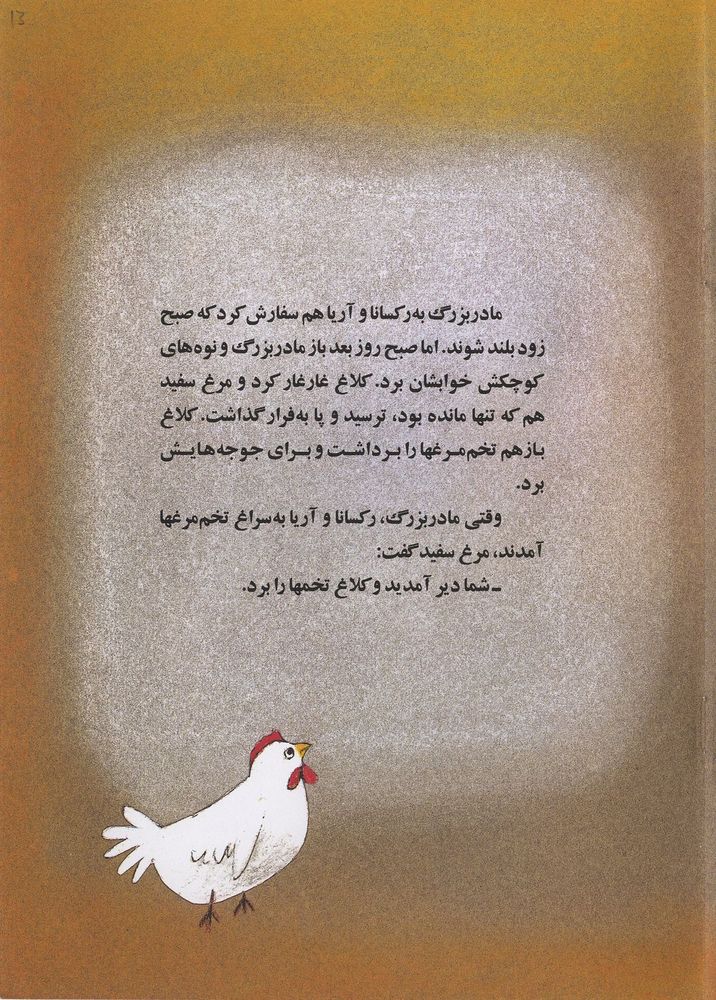 13
مادربزرگ به‌رکسانا و آریا هم سفارش کرد که صبح
زود بلند شوند. اما صبح روز بعد باز مادربزرگ و نوه‌های
کوچکش خوابشان برد. کلاغ غارغار کرد و مرغ سفید
هم که تنها مانده بود، ترسید و پا به‌فرار گذاشت. کلاغ
بازهم تخم‌مرغها را برداشت و برای جوجه‌هایش
برد.
وقتی مادربزرگ، رکسانا و آریا به‌سراغ تخم‌مرغها
آمدند، مرغ سفید گفت:
ـ شما دیر آمدید و کلاغ تخمها را برد.